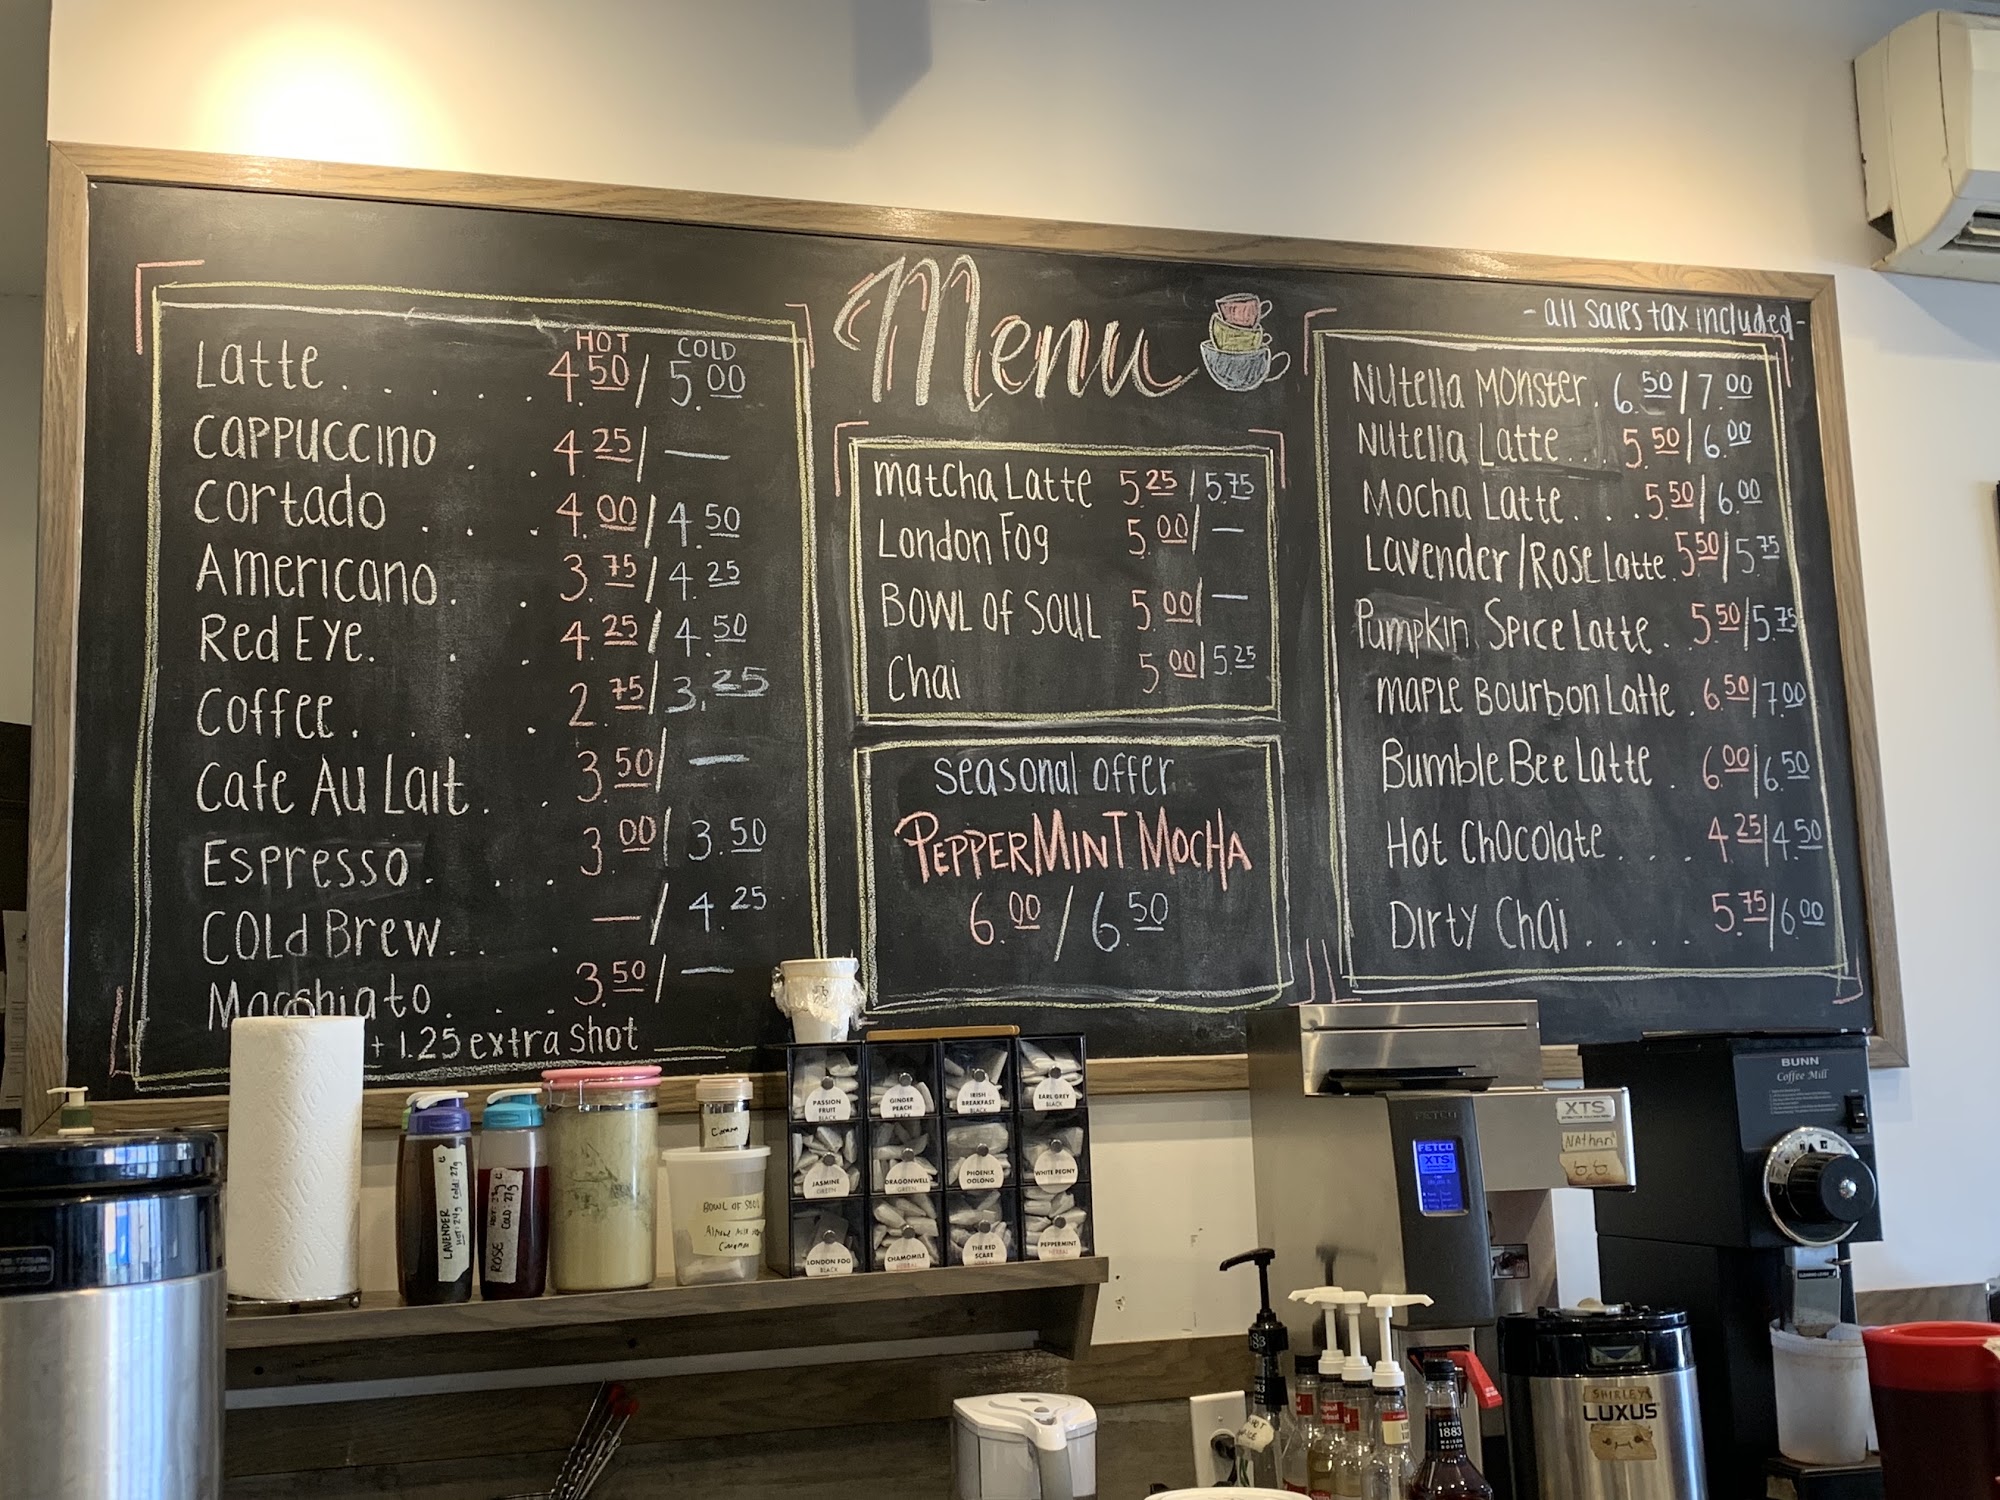 Menu
- all sales tax included -
HOT COLD
Latte . . . . . 4.50 / 5.00
Cappuccino . . 4.25 / —
Cortado . . . 4.00 / 4.50
Americano . . 3.75 / 4.25
Red Eye. . . 4.25 / 4.50
Coffee . . . . 2.75 / 3.25
Cafe Au Lait . . 3.50 / —
Espresso . . . 3.00 / 3.50
Cold Brew . . . — / 4.25
Macchiato . . . 3.50 / —
+ 1.25 extra shot
Matcha Latte 5.25 / 5.75
London Fog 5.00 / —
Bowl of Soul 5.00 / —
Chai 5.00 / 5.25
Seasonal offer
Peppermint Mocha
6.00 / 6.50
Nutella Monster . 6.50 / 7.00
Nutella Latte . . . 5.50 / 6.00
Mocha Latte . . . 5.50 / 6.00
Lavender/Rose Latte . 5.50 / 5.75
Pumpkin Spice Latte . . 5.50 / 5.75
Maple Bourbon Latte . 6.50 / 7.00
Bumble Bee Latte . 6.00 / 6.50
Hot Chocolate . . . . 4.25 / 4.50
Dirty Chai . . . . . 5.75 / 6.00
LAVENDER
HOT: 24g COLD: 27g
ROSE
COLD: 27g
BOWL OF SOUL
Cinnamon
PASSION FRUIT
BLACK
GINGER PEACH
BLACK
IRISH BREAKFAST
BLACK
EARL GREY
BLACK
JASMINE
GREEN
DRAGONWELL
GREEN
PHOENIX OOLONG
WHITE PEONY
LONDON FOG
BLACK
CHAMOMILE
HERBAL
THE RED SCARE
PEPPERMINT
HERBAL
FETCO
FETCO
XTS
XTS
NATHAN
BUNN
Coffee Mill
1883
1883
SHIRLEY
LUXUS